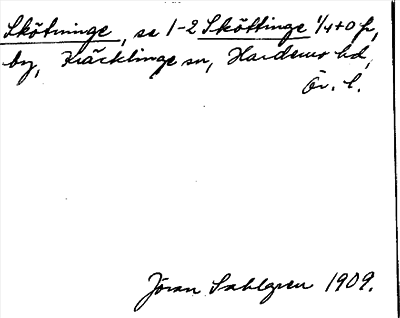 Skötninge, se 1-2 Sköttinge 1/4+0 fr,
by, Kräcklinge sn, Hardemo hd,
Ör. l.
Jöran Sahlgren 1909.